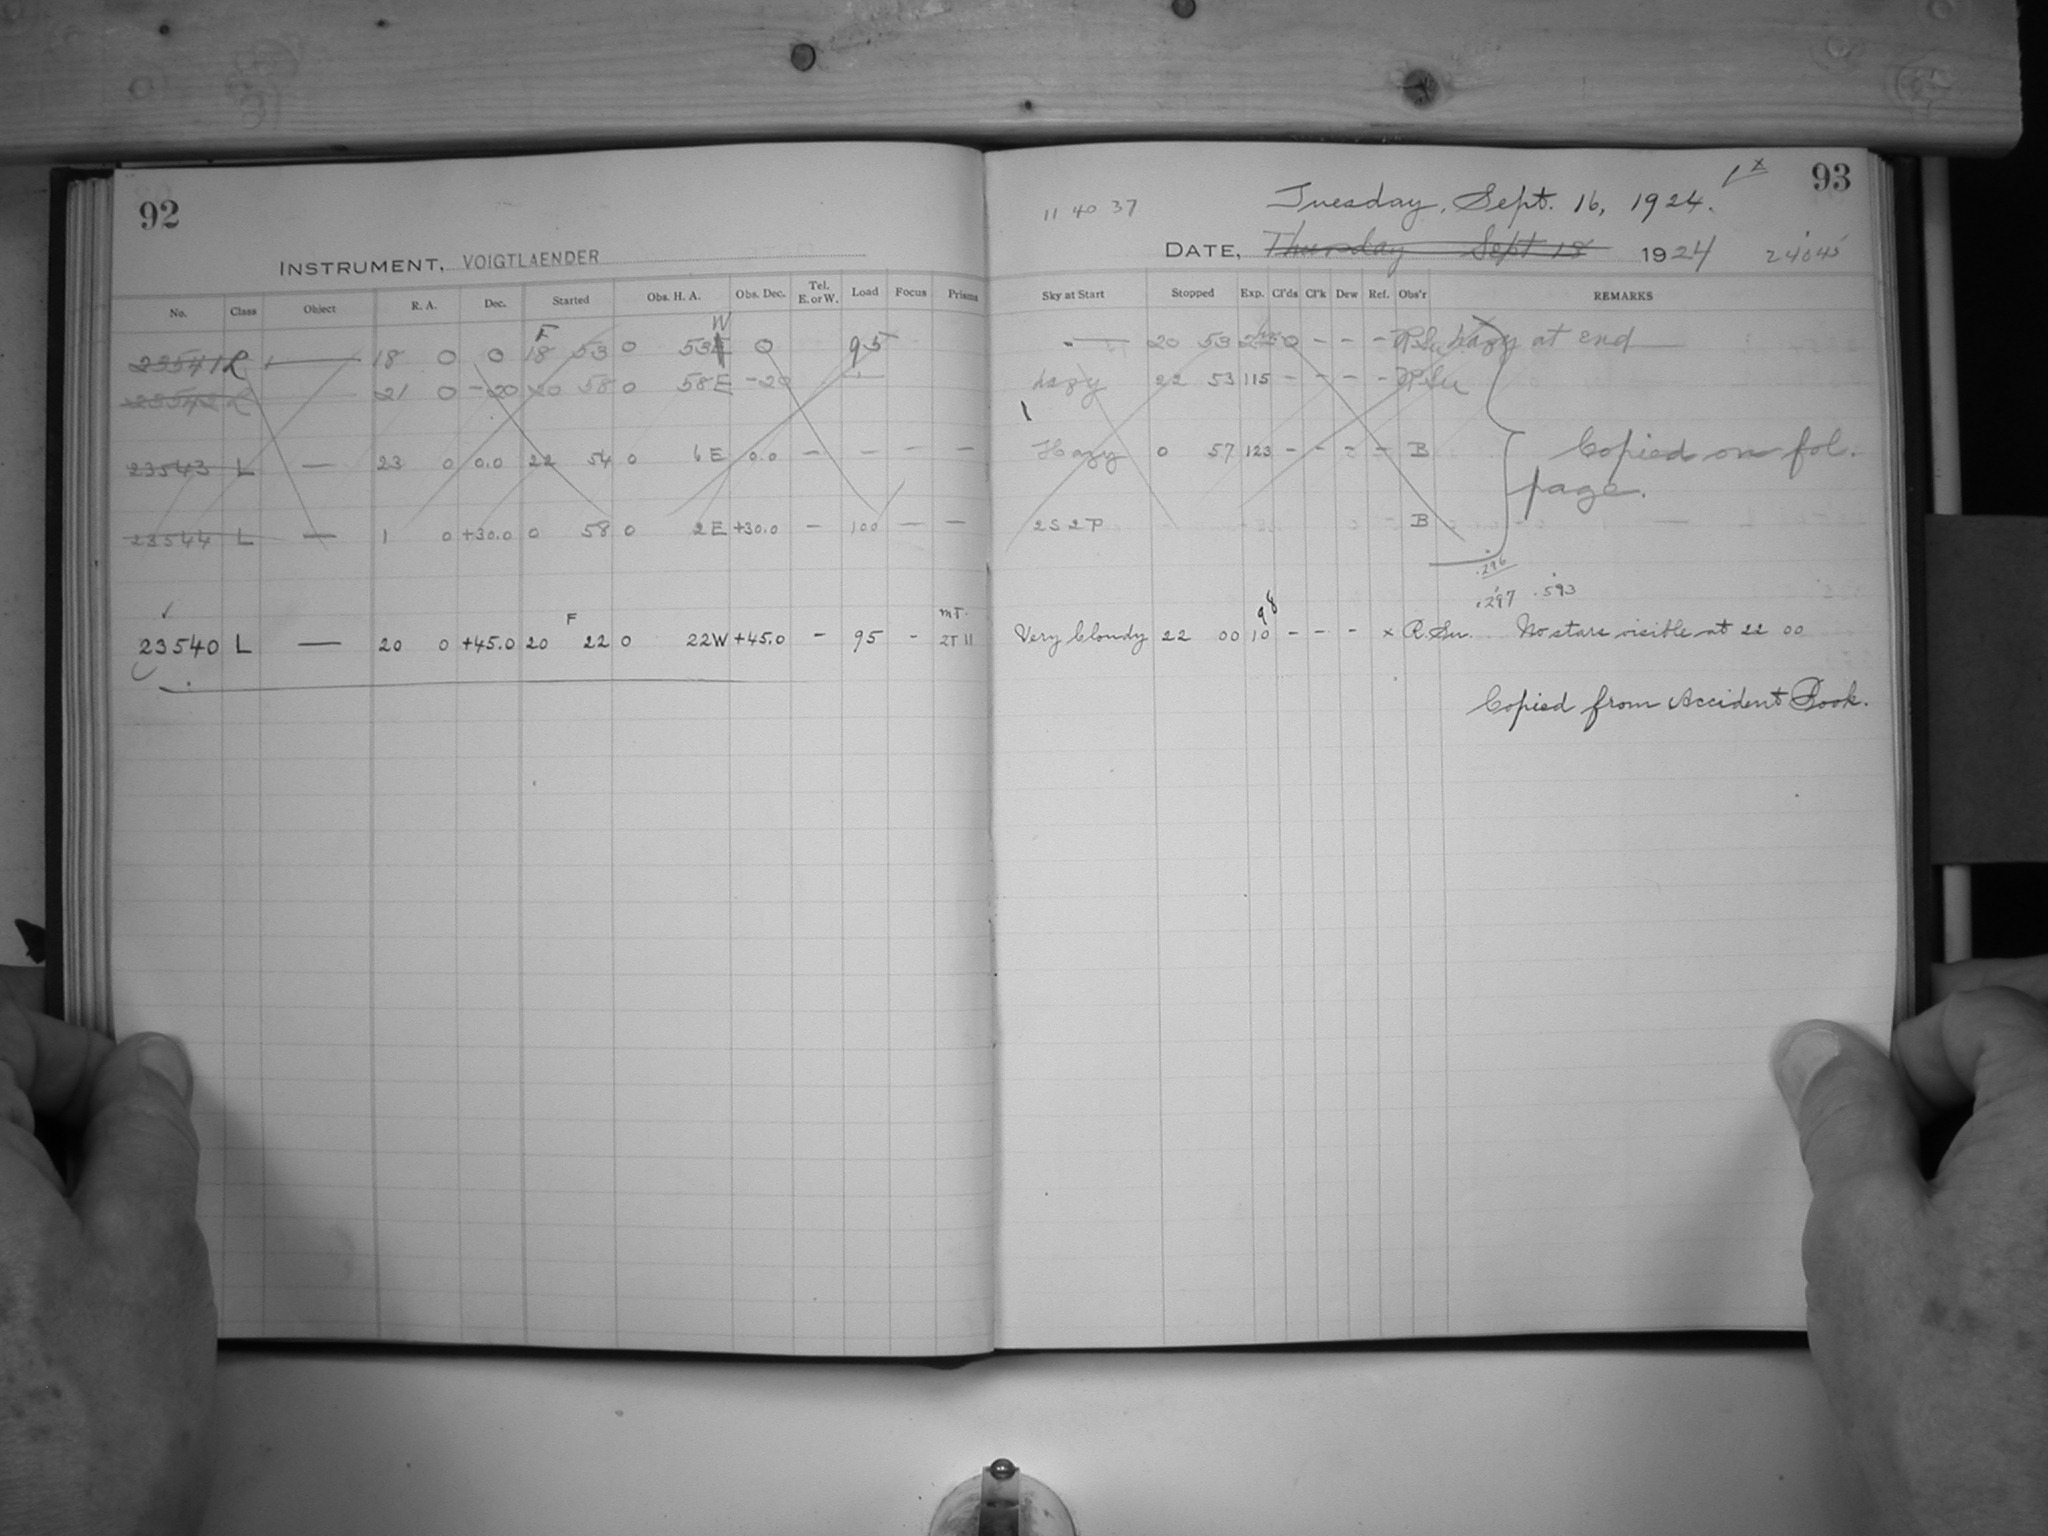 92
INSTRUMENT, VOIGTLAENDER
No. Class Object R. A. Dec. Started Obs. H. A. Obs. Dec. Tel. E. or W. Load Focus Prisms
23541 L — 18 0 0 F 18 53 0 53 W 0 95
23542 L 21 0 -20 20 58 0 58 E -20 —
23543 L — 23 0 0.0 22 54 0 6 E 0.0 — — — —
23544 L — 1 0 +30.0 0 58 0 2 E +30.0 — 100 — —
23540 L — 20 0 +45.0 20 F 22 0 22 W +45.0 - 95 - M.T. 2T 11
93
1 x
11 40 37
Tuesday, Sept. 16, 1924.
DATE, Thursday Sept 18 1924 24045
Sky at Start Stopped Exp. Cl'ds Cl'k Dew Ref. Obs'r REMARKS
— 20 53 - - - hazy at end
hazy 22 53 115 - - - -
Hazy 0 57 123 - - - - B
Copied on fol.
page.
2S 2P B
.296
.297 .593
Very Cloudy 22 00 10 98 - - - x R.Su. No stars visible at 22 00
Copied from Accident Book.